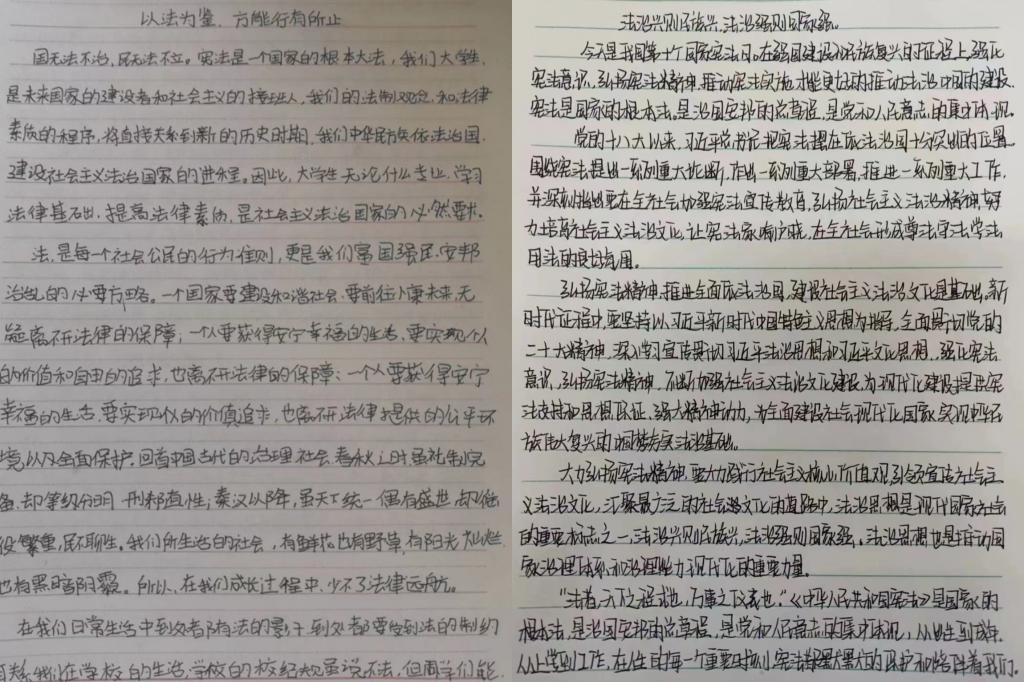 以法为鉴，方能行有所止
国无法不治，民无法不立。宪法是一个国家的根本大法，我们大学生，
是未来国家的建设者和社会主义的接班人，我们的法制观念，和法律
素质的程序，将直接关系到新的历史时期，我们中华民族依法治国，
建设社会主义法治国家的进程。因此，大学生无论什么专业，学习
法律基础，提高法律素质，是社会主义法治国家的必然要求。
法，是每个社会公民的行为准则，更是我们富国强民，安邦
治乱的必要方略。一个国家要建设和谐社会，要前往小康未来，无
疑离不开法律的保障；一个人要获得安宁幸福的生活，要实现个人
的价值和自由的追求，也离不开法律的保障；一个人要获得安宁
幸福的生活，要实现个人的价值追求，也离不开法律提供的公平环
境以及全面保护。回首中国古代的治理社会，春秋之时虽礼制完
备，却等级分明，刑都直性；秦汉以降，虽天下统一偶有盛世，却徭
役繁重，民不聊生。我们所生活的社会，有鲜花也有野草，有阳光灿烂，
也有黑暗阴霾。所以，在我们成长过程中，少不了法律远航。
在我们日常生活中到处都有法的影子，到处都要受到法的制约
我们在学校的生活，学校的校纪校规虽说不法，但同学们能
法治兴则民族兴，法治强则国家强。
今天是我国第十个国家宪法日，在强国建设和民族复兴的征程上，强化
宪法意识，弘扬宪法精神，推动宪法实施，才能更好的推动法治中国的建设。
宪法是国家的根本法，是治国安邦的总章程，是党和人民意志的集中体现。
党的十八大以来，习近平总书记把宪法摆在依法治国十分突出的位置，
围绕宪法提出一系列重大论断，作出一系列重大部署，推进一系列重大工作，
并深刻指出要在全社会加强宪法宣传教育，弘扬社会主义法治精神，努
力培育社会主义法治文化，让宪法家喻户晓，在全社会形成尊法守法学法
用法的良好氛围。
弘扬宪法精神，推进全面依法治国，建设社会主义法治文化是基础，新
时代征程中，要坚持以习近平新时代中国特色主义思想为指导，全面贯彻党的
二十大精神，深入学习宣传贯彻习近平法治思想和习近平文化思想，强化宪法
意识，弘扬宪法精神，不断加强社会主义法治文化建设，为现代化建设提供宪
法支持和思想保证，强大精神动力，为全面建设社会现代化国家，实现中华民
族伟大复兴的中国梦夯实法治基础。
大力弘扬宪法精神，要努力践行社会主义核心价值观，引领宣传社会主
义法治文化，汇聚最广泛的社会法治文化的道路中，法治思想是现代国家社会
的重要标志之一，法治兴则民族兴，法治强则国家强。法治思想也是推动国
家治理体系和治理能力现代化的重要力量。
“法者，天下之程式也，万事之仪表也。”《中华人民共和国宪法》是国家的
根本法，是治国安邦的总章程，是党和人民意志的集中体现，从出生到成年，
从上学到工作，在人生的每一个重要时刻，宪法都默默的保护和陪伴着我们。